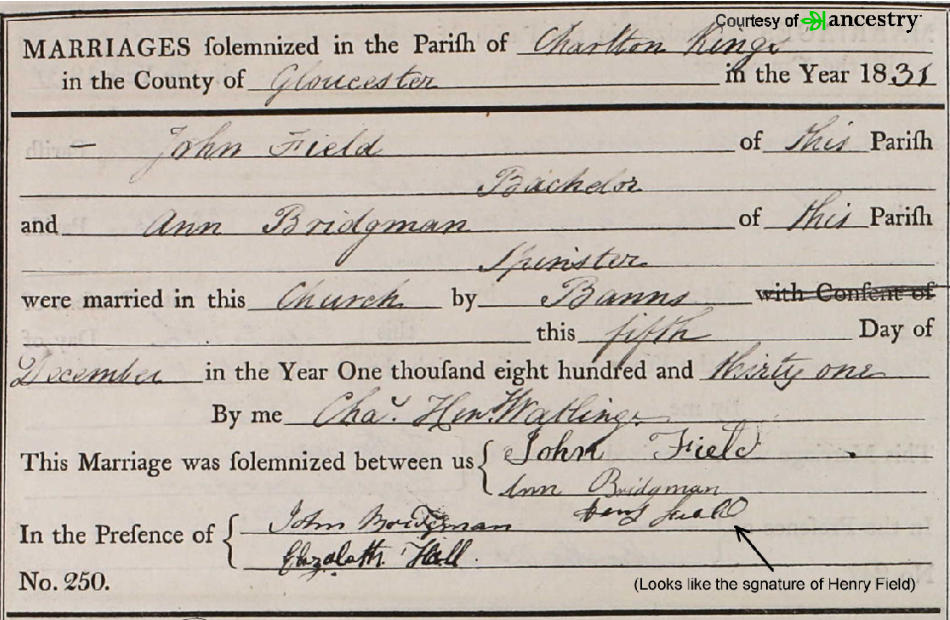 Courtesy of ancestry
MARRIAGES ſolemnized in the Pariſh of Charlton Kings
in the County of Gloucester in the Year 1831
John Field of this Pariſh
Bachelor
and Ann Bridgman of this Pariſh
Spinster
were married in this Church by Banns with Conſent of
this fifth Day of
December in the Year One thouſand eight hundred and thirty one
By me Chaˢ. Henʸ. Watling
This Marriage was ſolemnized between us { John Field
Ann Bridgman
In the Preſence of { John Bridgman
Elizabeth Hall
No. 250.
(Looks like the sgnature of Henry Field)